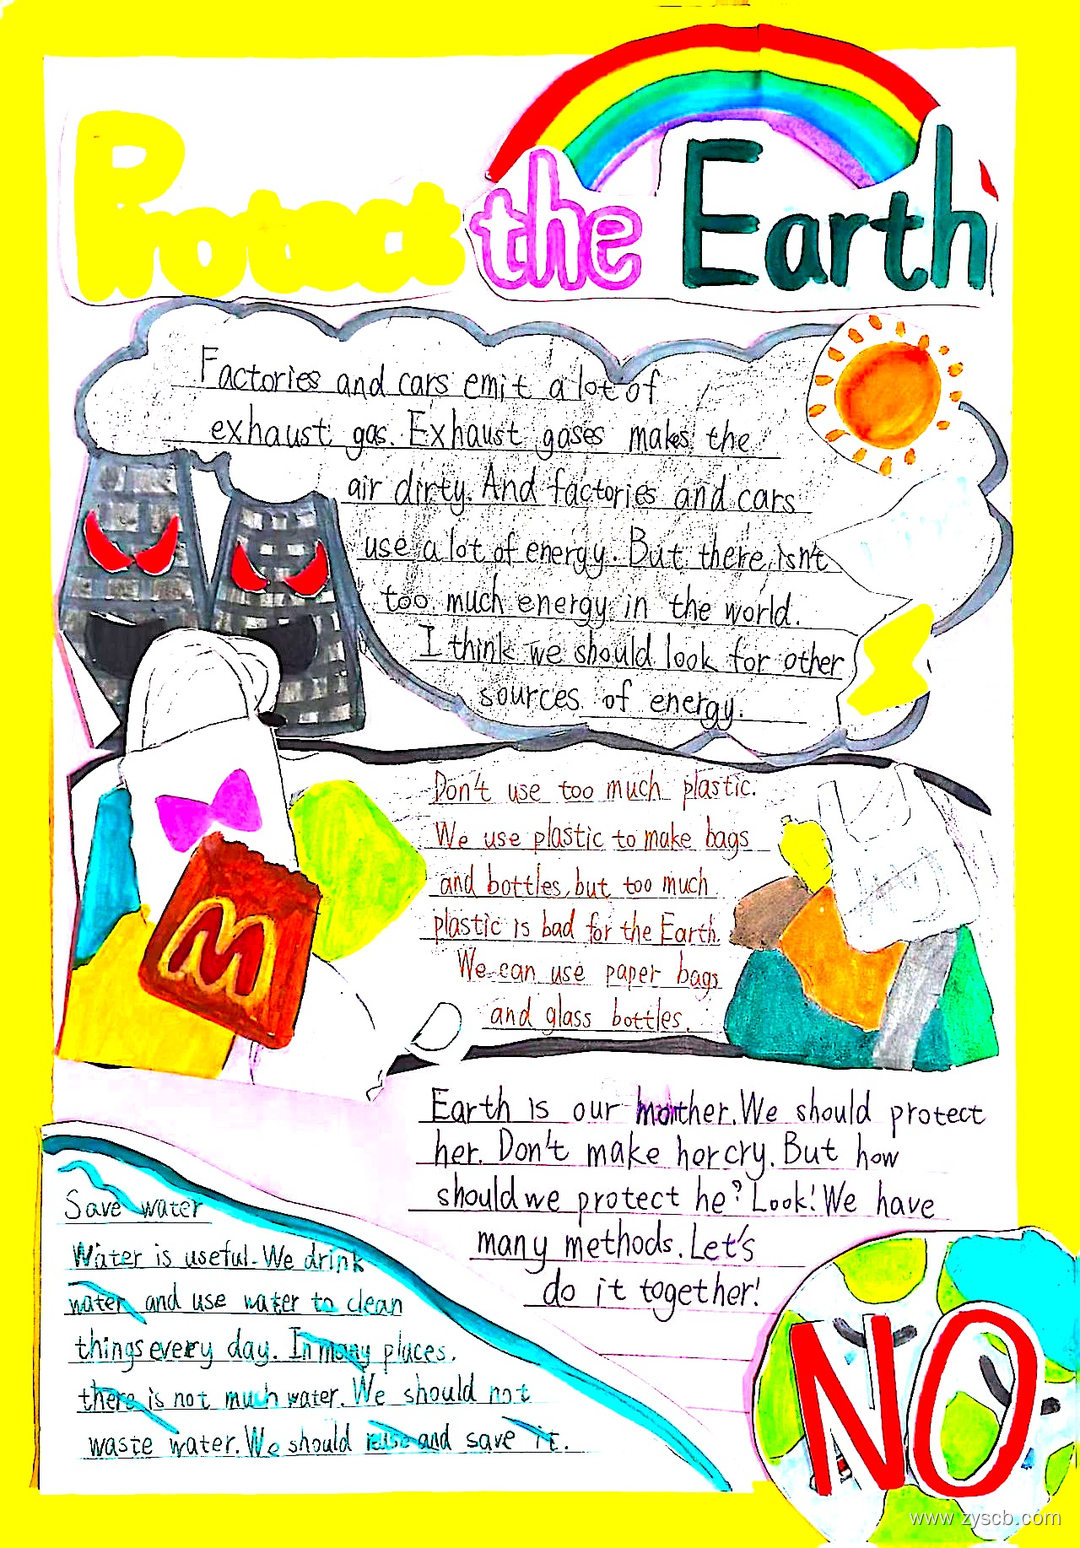 Protect the Earth
Factories and cars emit a lot of
exhaust gas. Exhaust gases makes the
air dirty. And factories and cars
use a lot of energy. But there isn't
too much energy in the world.
I think we should look for other
sources of energy.
Don't use too much plastic.
We use plastic to make bags
and bottles, but too much
plastic is bad for the Earth.
We can use paper bags
and glass bottles.
M
Earth is our mother. We should protect
her. Don't make her cry. But how
should we protect he? Look! We have
many methods. Let's
do it together!
Save water
Water is useful. We drink
water and use water to clean
things every day. In many places,
there is not much water. We should not
waste water. We should reuse and save it.
NO
www.zyscb.com